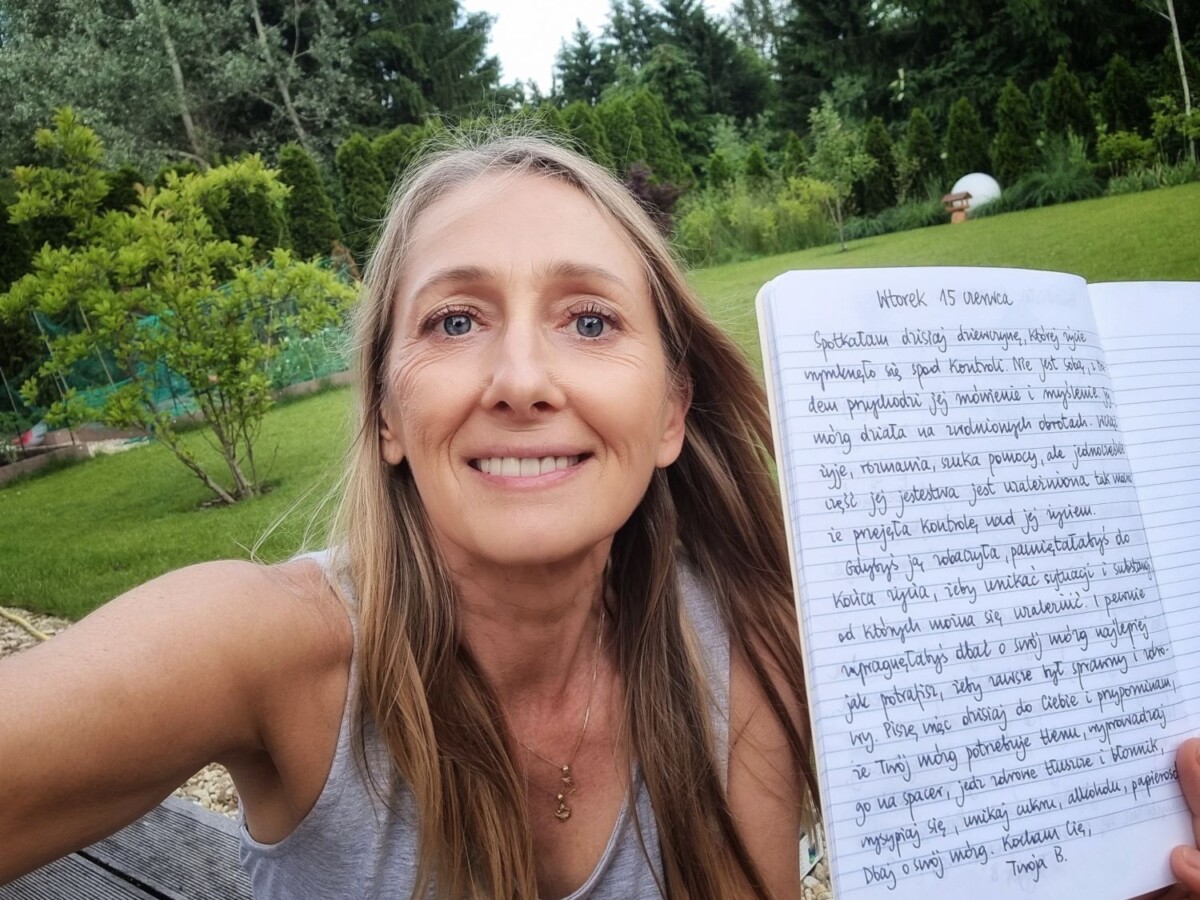 Wtorek 15 czerwca
Spotkałam dzisiaj dziewczynę, której życie
wymknęło się spod kontroli. Nie jest sobą, z tru-
dem przychodzi jej mówienie i myślenie.
mózg działa na zwolnionych obrotach.
żyje, rozmawia, szuka pomocy, ale jednocześnie
część jej jestestwa jest uzależniona tak
że przejęła kontrolę nad jej życiem.
Gdybyś ją zobaczyła, pamiętałabyś do
końca życia, żeby unikać sytuacji i substancji
od których można się uzależnić. I pewnie
zapragnęłabyś dbać o swój mózg najlepiej
jak potrafisz, żeby zawsze był sprawny i zdro-
wy. Piszę więc dzisiaj do Ciebie i przypominam,
że Twój mózg potrzebuje tlenu, wyprowadzaj
go na spacer, jedz zdrowe tłuszcze i błonnik,
wysypiaj się, unikaj cukru, alkoholu, papierosó
Dbaj o swój mózg. Kocham Cię,
Twoja B.